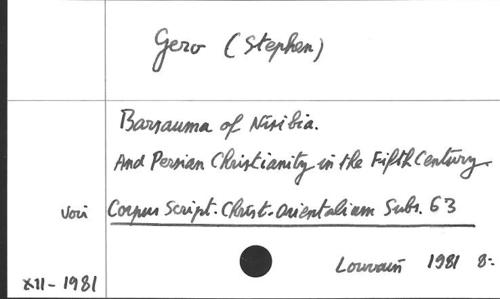 Gero (Stephen)
Barsauma of Nisibia.
And Persian Christianity in the Fifth Century.
voir Corpus Script. Christ. Orientalium Subs. 63
Louvain 1981 8:-
XII - 1981